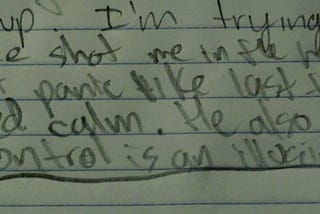 up. I'm trying
shot me in the
panic like last
calm. He also
control is an